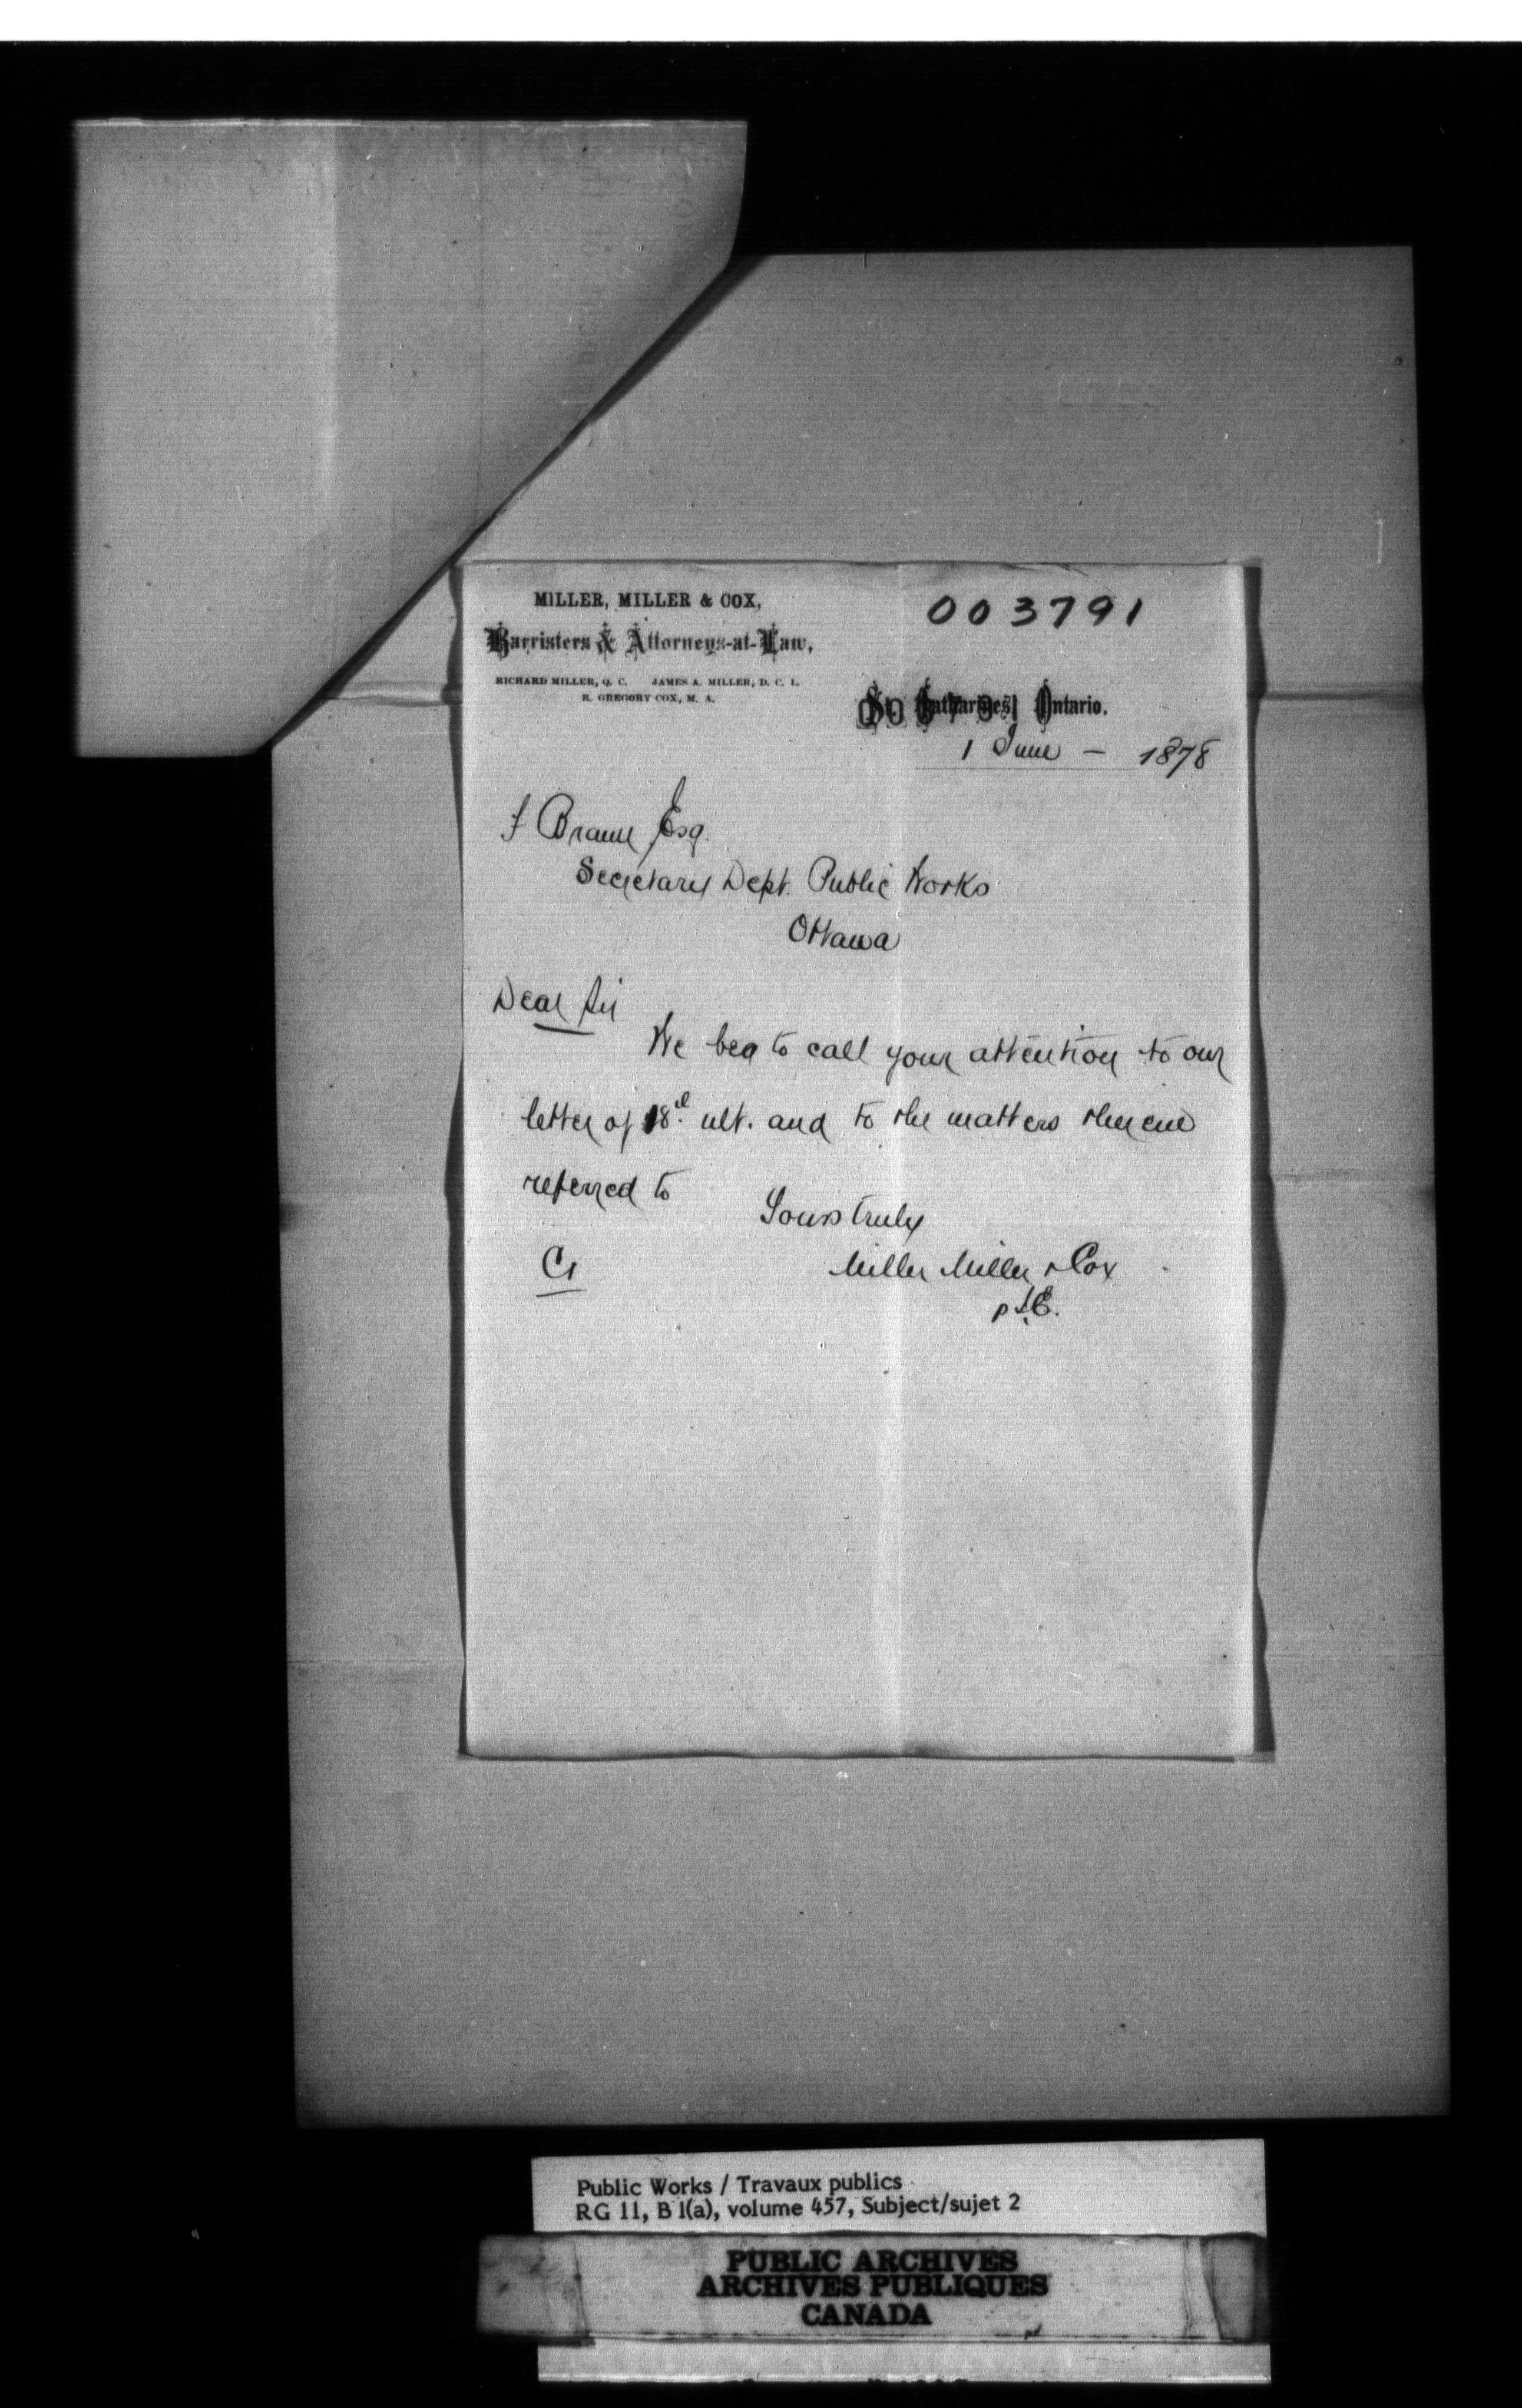 MILLER, MILLER & COX,
Barristers & Attorneys-at-Law,
RICHARD MILLER, Q. C. JAMES A. MILLER, D. C. L.
R. GREGORY COX, M. A.
003791
St. Catharines, Ontario.
1 June — 1878
F Braun Esq.
Secretary Dept. Public Works
Ottawa
Dear Sir
We beg to call your attention to our
letter of 18th ult. and to the matters therein
referred to
Yours truly
Miller Miller & Cox
Public Works / Travaux publics
RG 11, B 1(a), volume 457, Subject/sujet 2
PUBLIC ARCHIVES
ARCHIVES PUBLIQUES
CANADA